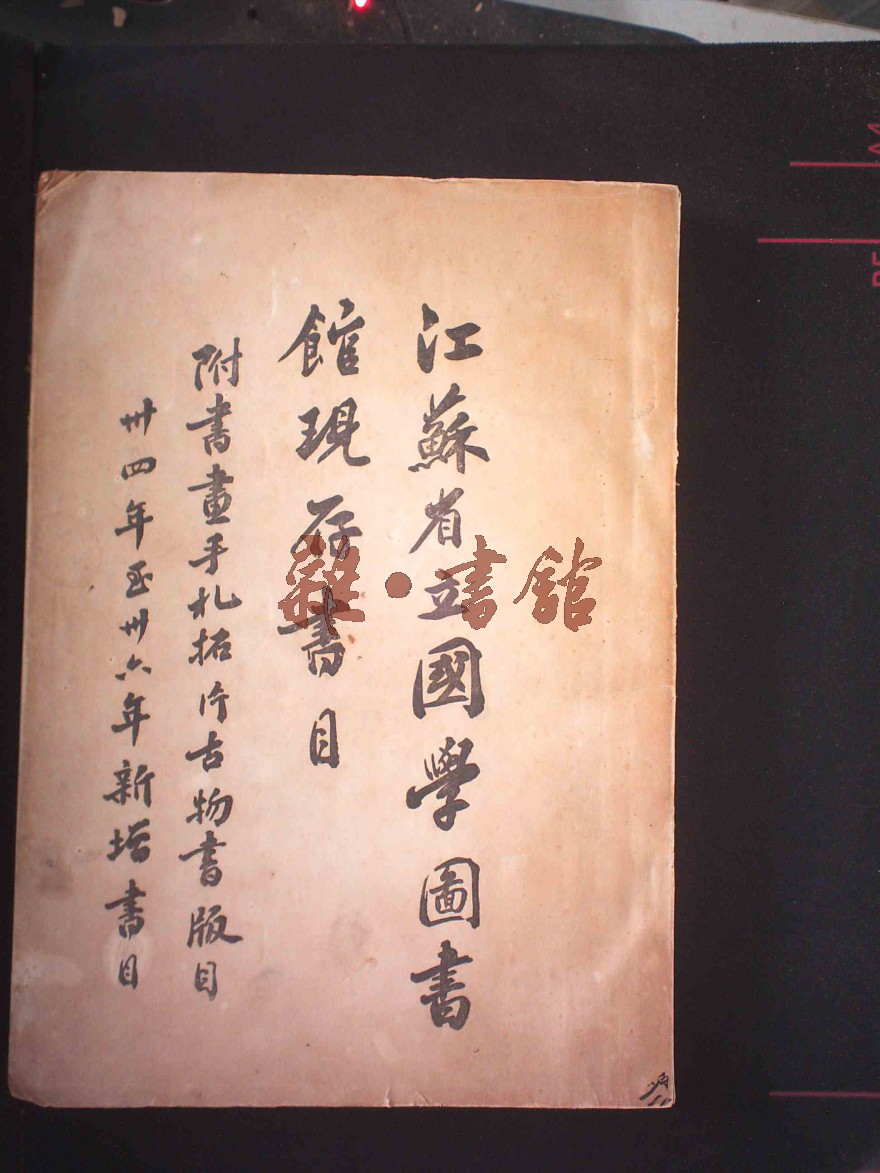 江蘇省立國學圖書
館現存書目
附書畫手札拓片古物書版目
卅四年至卅六年新增書目
雜·書館
A4
B5